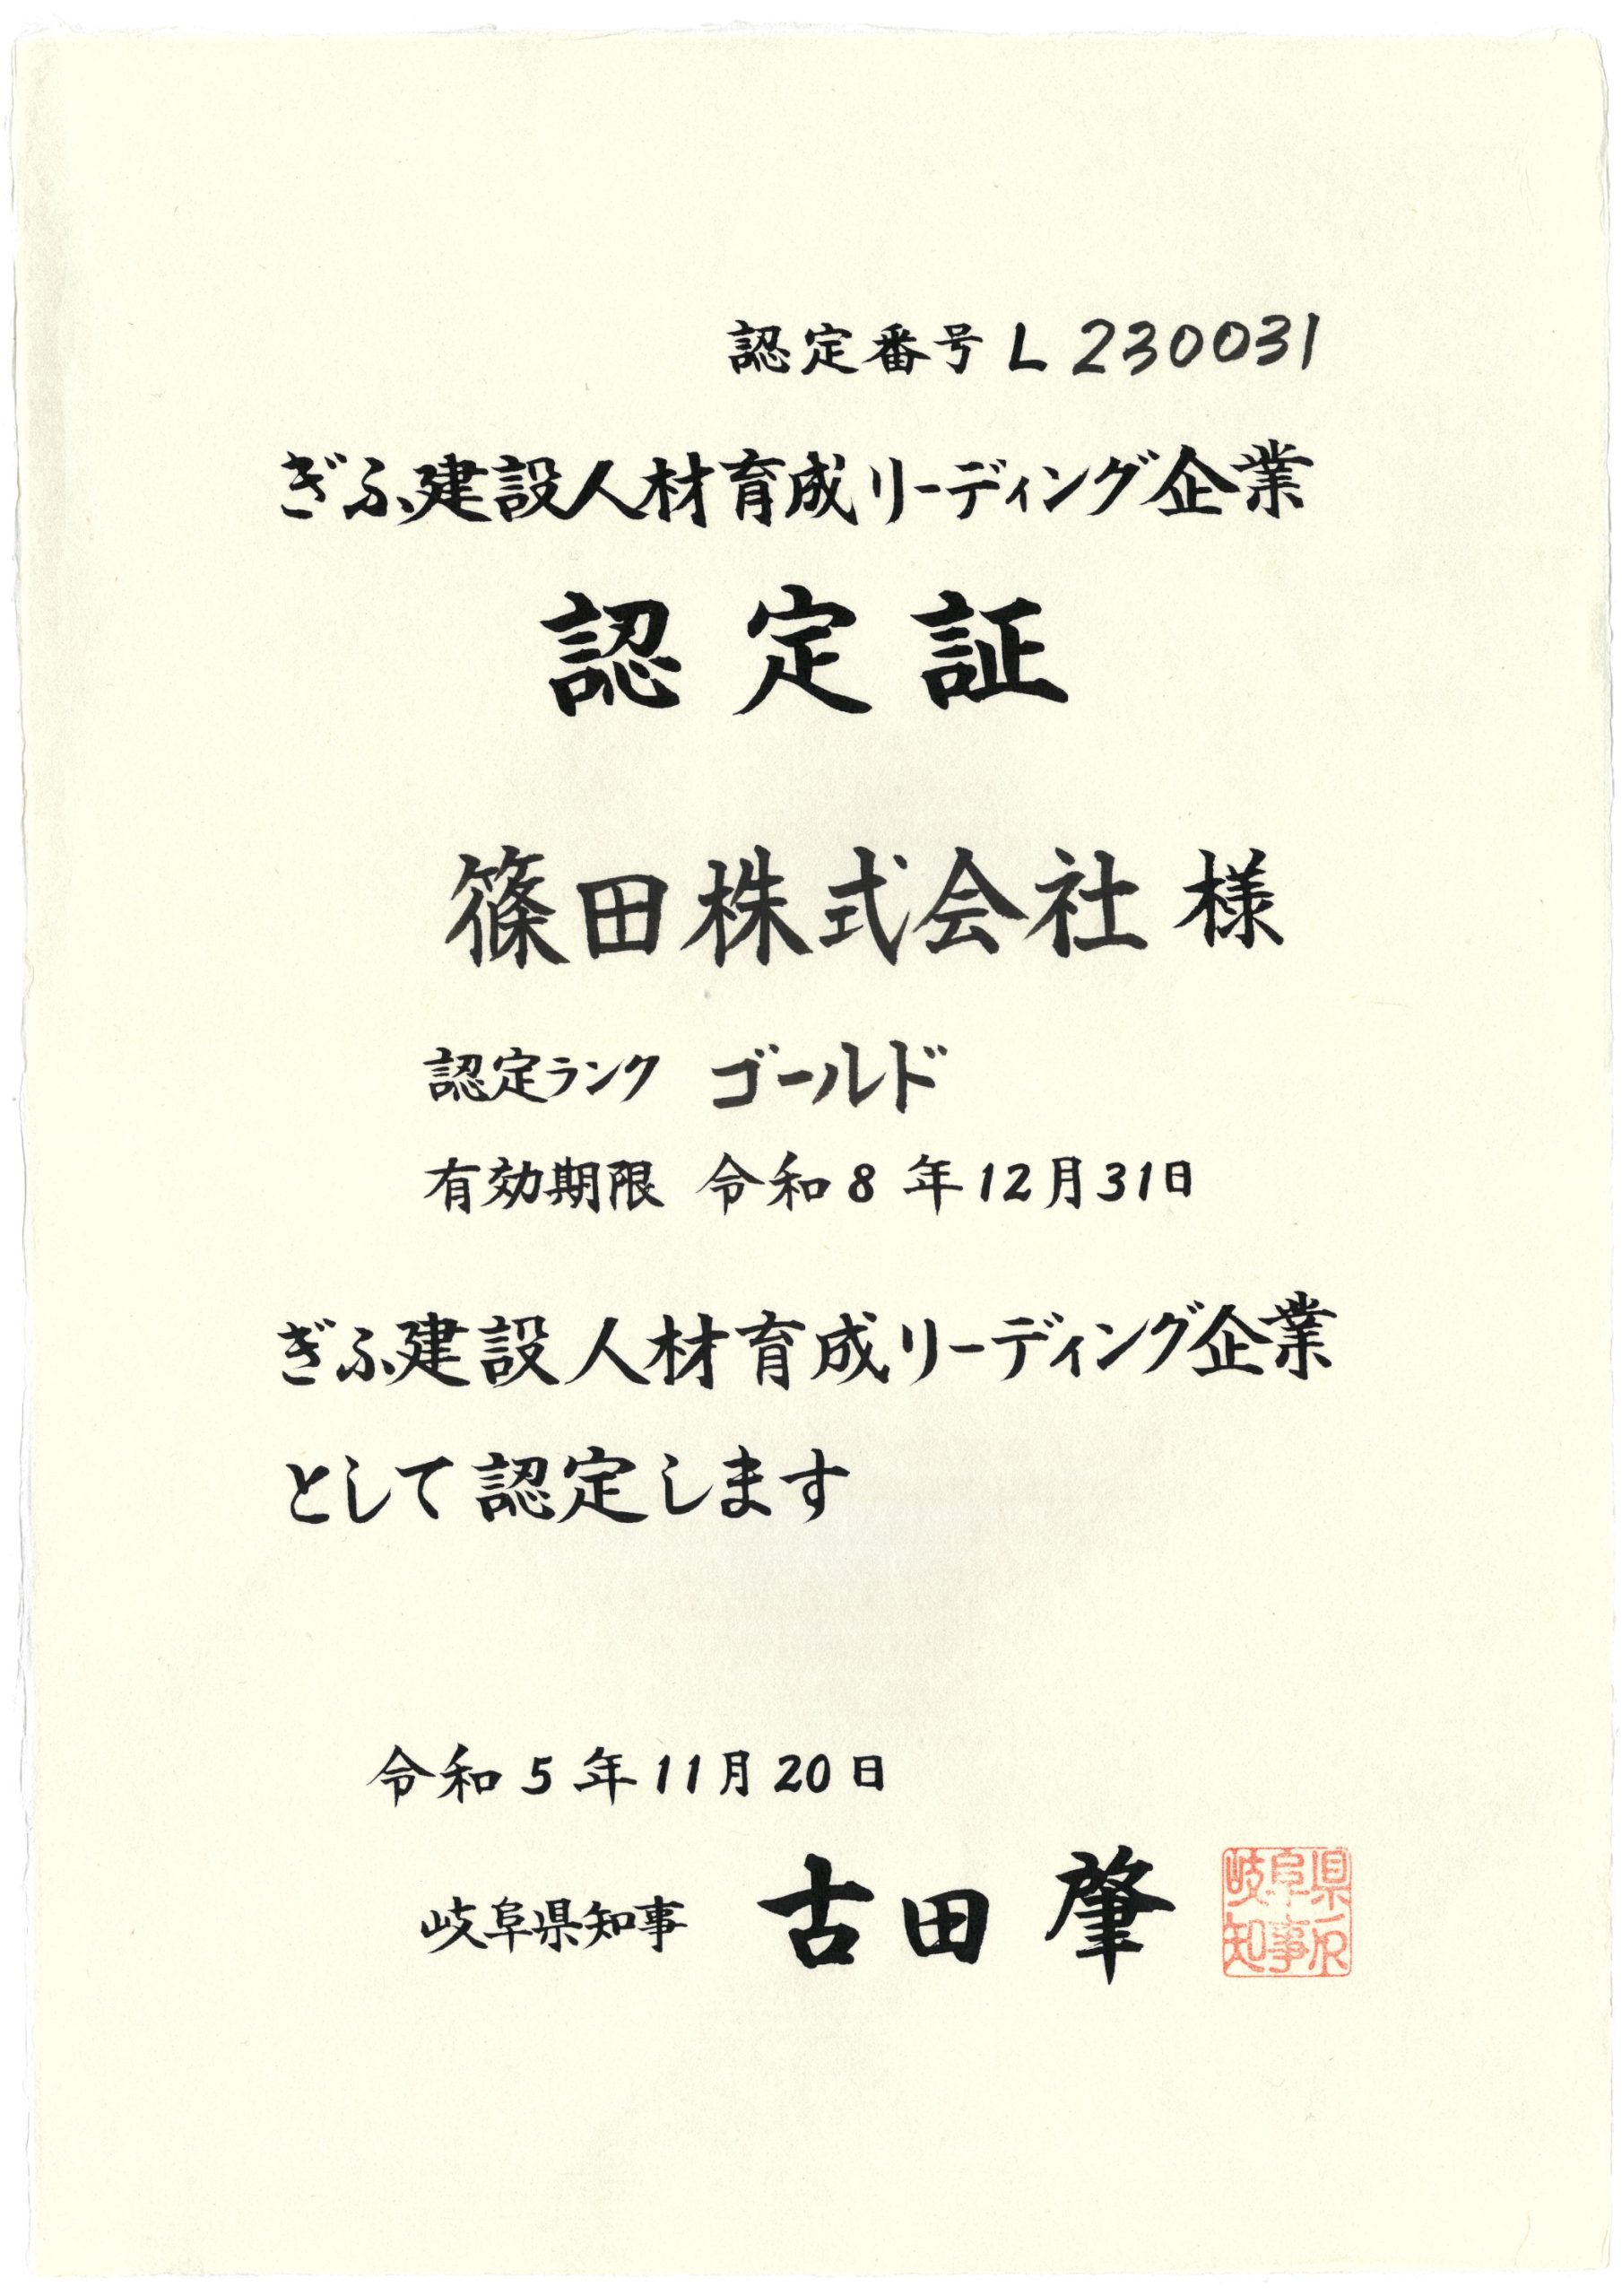 認定番号 L 230031
ぎふ建設人材育成リーディング企業
認定証
篠田株式会社 様
認定ランク ゴールド
有効期限 令和8年12月31日
ぎふ建設人材育成リーディング企業
として認定します
令和5年11月20日
岐阜県知事 古田 肇
岐阜県
知事印